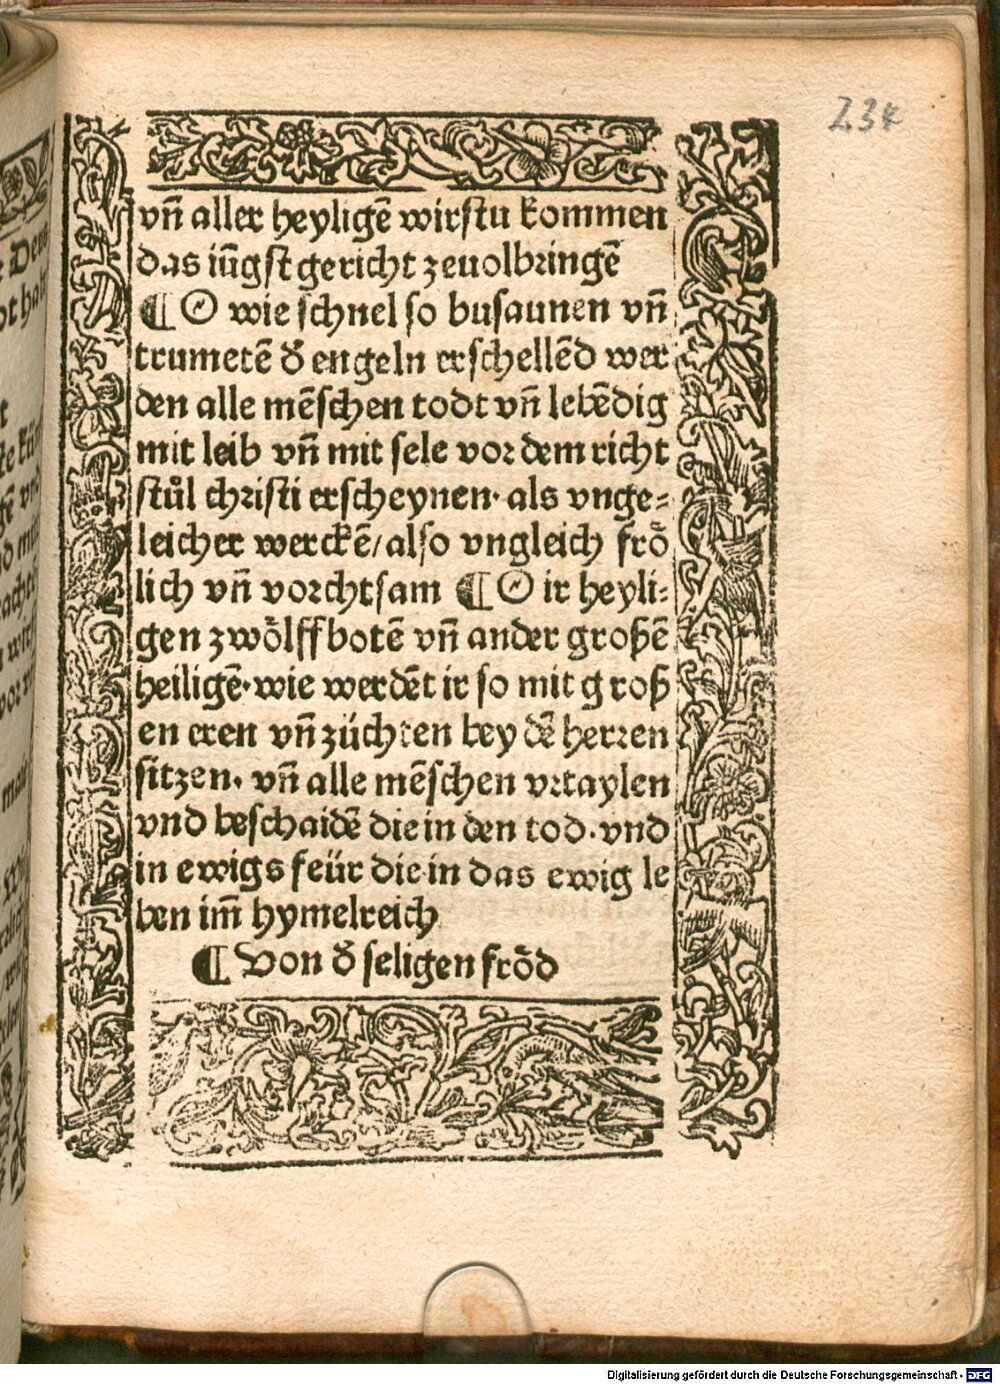 234
vn̄ aller heyligē wirstu kommen
das iu̅gst gericht zeuolbringē
¶ O wie schnel so busaunen vn̄
trumetē đ engeln erschellēd wer
den alle mēschen todt vn̄ lebēdig
mit leib vn̄ mit sele vor dem richt
stůl christi erscheynen· als vnge⸗
leicher werckē/ also vngleich frö
lich vn̄ vorchtsam ¶ O ir heyli⸗
gen zwölffbotē vn̄ ander großē
heiligē· wie werdēt ir so mit groß
en eren vn̄ züchten bey dē herren
sitzen· vn̄ alle mēschen vrtaylen
vnd beschaidē die in den tod· vnd
in ewigs feür die in das ewig le
ben im̄ hymelreich
¶ Von đ seligen fröd
Digitalisierung gefördert durch die Deutsche Forschungsgemeinschaft - DFG